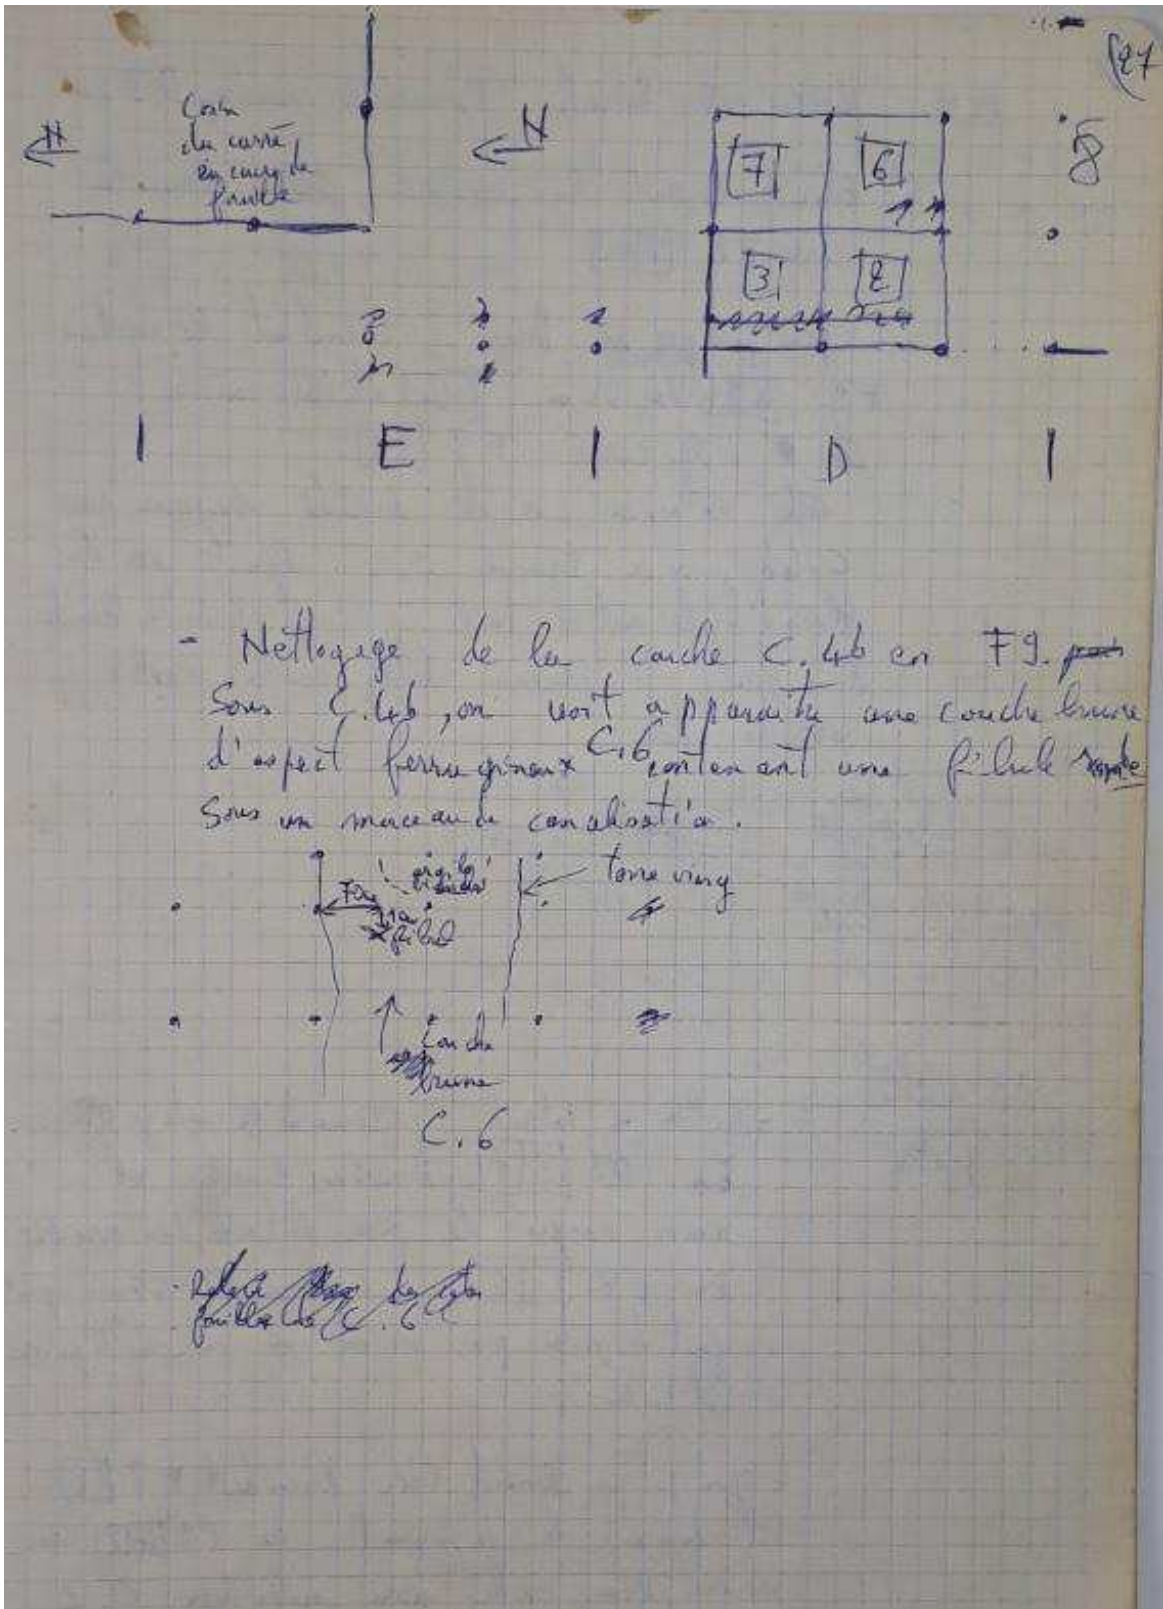 27
N
Coin
du carré
en cours de
fouille
N
7
6
8
3
2
I E I D I
- Nettoyage de la couche C.4b en F9.
Sous C.4b, on voit apparaitre une couche brune
d'aspect ferrugineux C.6 contenant une fibule
Sous un morceau de canalisation.
terre vierge
Couche
brune
C.6